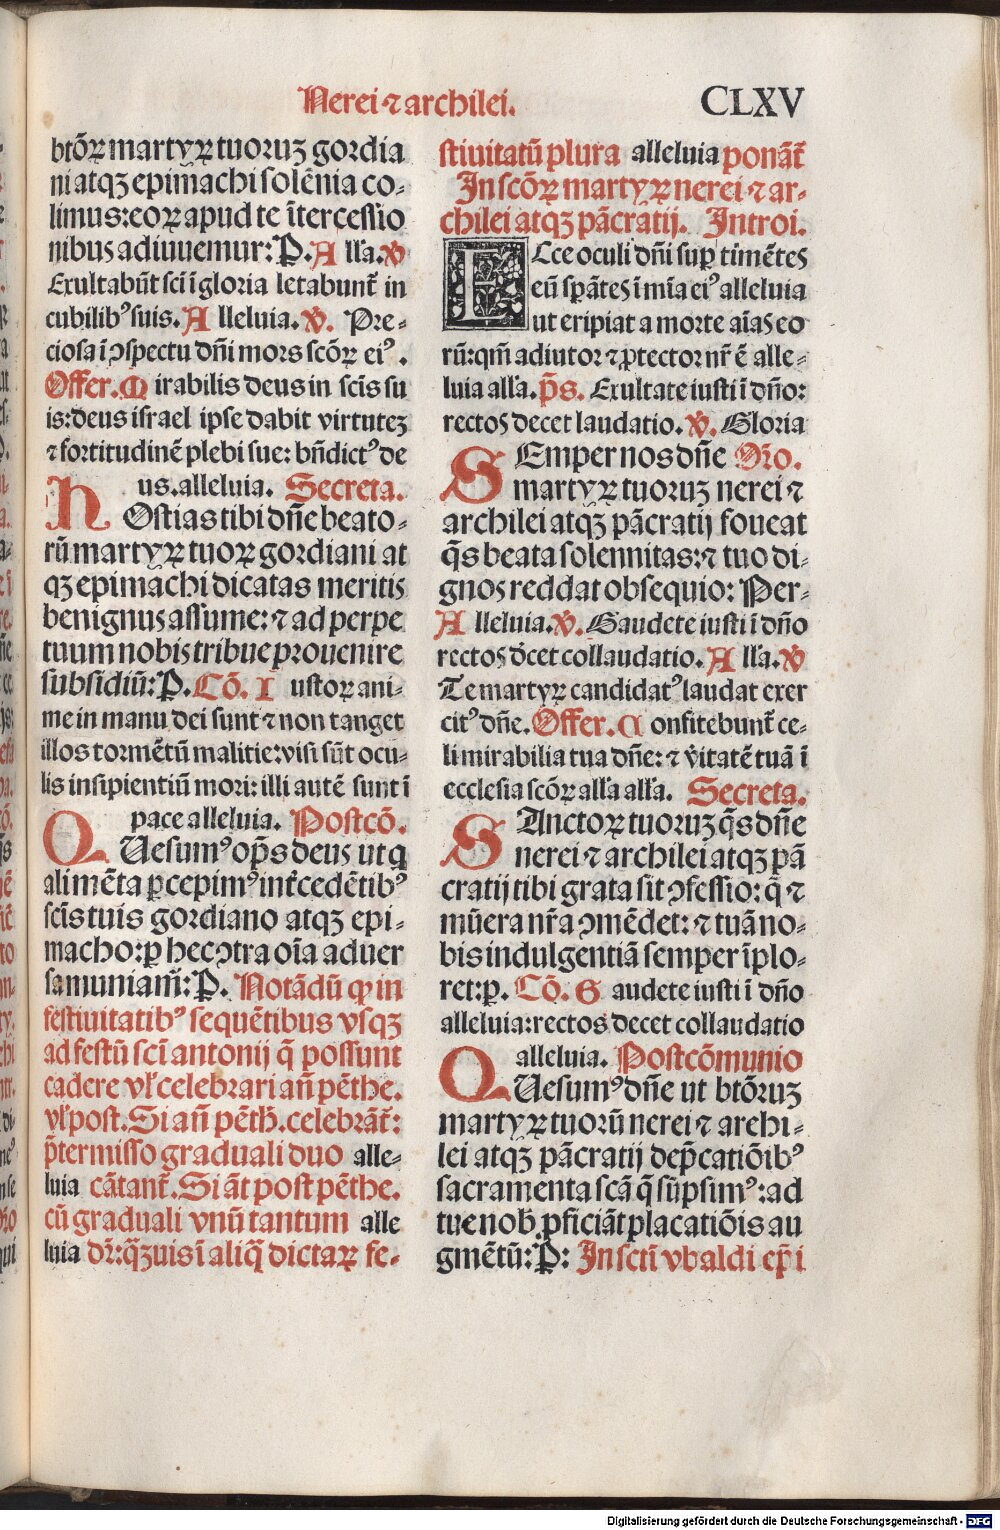 Nerei ⁊ archilei.
CLXV
btōꝝ martyꝝ tuoruꝫ gordia
ni atqꝫ epimachi solēnia co-
limus: eoꝝ apud te ītercessio
nibus adiuuemur: P. A lla. ℣
Exultabūt sci ī gloria letabunt᷑ in
cubilibꝰ suis. A lleluia. ℣. Pre-
ciosa ī ↄspectu dn̄i mors scōꝝ eiꝰ.
Offer. M irabilis deus in scīs su
is: deus israel ipse dabit virtuteꝫ
⁊ fortitudinē plebi sue: bn̄dictꝰ de
us. alleluia. Secreta.
HOstias tibi dn̄e beato-
rū martyꝝ tuoꝝ gordiani at
qꝫ epimachi dicatas meritis
benignus assume: ⁊ ad perpe
tuum nobis tribue prouenire
subsidiū: P. Cō. I ustoꝝ ani-
me in manu dei sunt ⁊ non tanget
illos tormētū malitie: visi sūt ocu-
lis insipientiū mori: illi autē sunt ī
pace alleluia. Postcō.
QUesumꝰ op̄s deus ut q
alimēta ꝑcepimꝰ int᷑cedētibꝰ
scīs tuis gordiano atqꝫ epi-
macho: ꝑ hec ↄtra oīa aduer
sa muniam᷑: P. Notādū ꝙ in
festiuitatibꝰ sequētibus vsqꝫ
ad festū scī antonij q̄ possunt
cadere vl̓ celebrari an̄ pēthe.
vl̓ post. Si an̄ pēth. celebrāt᷑:
p̄termisso graduali duo alle-
luia cātant᷑. Si āt post pēthe.
cū graduali vnū tantum alle
luia dr̄: q̄ꝫuis ī aliq̄ dictaꝝ fe-
stiuitatū plura alleluia ponāt᷑
In scōꝝ martyꝝ nerei ⁊ ar-
chilei atqꝫ pācratij. Introi.
ECce oculi dn̄i suꝑ timētes
eū sꝑātes ī mīa eiꝰ alleluia
ut eripiat a morte aīas eo
rū: qm̄ adiutor ⁊ ꝓtector nr̄ ē alle-
luia all̓a. p̄s. Exultate iusti ī dn̄o:
rectos decet laudatio. ℣. Gloria
SEmper nos dn̄e Oro.
martyꝝ tuoruꝫ nerei ⁊
archilei atqꝫ pācratij foueat
q̄s beata solennitas: ⁊ tuo di-
gnos reddat obsequio: Per-
A lleluia. ℣. Gaudete iusti ī dn̄o
rectos dēcet collaudatio. A lla. ℣
Te martyꝝ candidatꝰ laudat exer
citꝰ dn̄e. Offer. C onfitebunt᷑ ce-
li mirabilia tua dn̄e: ⁊ v̓itatē tuā ī
ecclesia scōꝝ all̓a all̓a. Secreta.
SAnctoꝝ tuoruꝫ q̄s dn̄e
nerei ⁊ archilei atqꝫ pā
cratij tibi grata sit ↄfessio: q̄ ⁊
mūera nr̄a ↄmēdet: ⁊ tuā no-
bis indulgentiā semper īplo-
ret: ꝑ. Cō. G audete iusti ī dn̄o
alleluia: rectos decet collaudatio
alleluia. Postcōmunio
QUesumꝰ dn̄e ut btōruꝫ
martyꝝ tuorū nerei ⁊ archi-
lei atqꝫ pācratij dep̄catiōibꝰ
sacramenta scā q̄ sūpsimꝰ: ad
tue nob̓ ꝓficiāt placatiōis au
gmētū: P: In scti vbaldi ep̄i
Digitalisierung gefördert durch die Deutsche Forschungsgemeinschaft - DFG